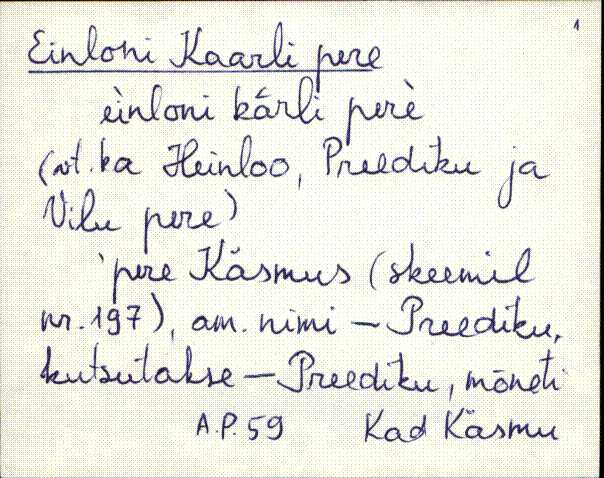 1
Einloni Kaarli pere
èinloni kárli perè
(vt. ka Heinloo, Preediku ja
Vilu pere)
'pere Käsmus (skeemil
nr. 197), am. nimi — Preediku,
kutsutakse — Preediku, mõneti
A.P. 59 Kad Käsmu